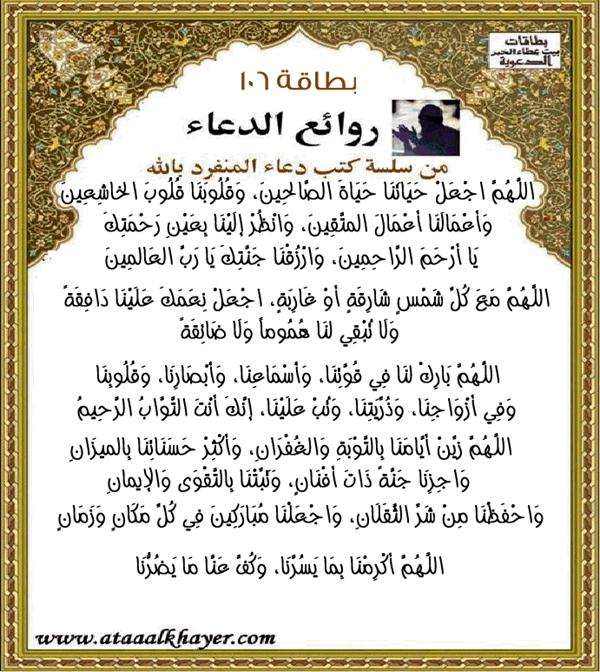 بطاقات
بيت عطاء الخير
الدعوية
بطاقة ١٠٦
روائع الدعاء
من سلسة كتب دعاء المنفرد بالله
اللَّهُمَّ اجْعَلْ حَيَاتَنَا حَيَاةَ الصَّالِحِينَ، وَقُلُوبَنَا قُلُوبَ الخَاشِعِينَ
وَأَعْمَالَنَا أَعْمَالَ المتَّقِينَ، وَانْظُرْ إِلَيْنَا بِعَيْنِ رَحْمَتِكَ
يَا أَرْحَمَ الرَّاحِمِينَ، وَارْزُقْنَا جَنَّتِكَ يَا رَبَّ العَالَمِينَ
اللَّهُمَّ مَعَ كُلِّ شَمْسٍ شَارِقَةٍ أَوْ غَارِبَةٍ، اجْعَلْ نِعَمَكَ عَلَيْنَا دَافِقَةً
وَلَا تُبْقِي لنَا هُمُوماً وَلَا ضَائِقَةً
اللَّهُمَّ بَارِكْ لنَا فِي قُوَّتِنَا، وَأَسْمَاعِنَا، وَأَبْصَارِنَا، وَقُلُوبِنَا
وَفِي أَزْوَاجِنَا، وَذُرِّيَتِنَا، وَتُبْ عَلَيْنَا، إِنَّكَ أَنْتَ التَّوَّابُ الرَّحِيمُ
اللَّهُمَّ زَيِّنْ أَيَّامَنَا بِالتَّوْبَةِ وَالغُفْرَانِ، وَأَكْثِرْ حَسَنَاتِنَا بِالميزَانِ
وَاجِزِنَا جَنَّةً ذَاتَ أَفْنَانٍ، وَثَبِّتْنَا بِالتَّقْوَى وَالإيمانِ
وَاحْفَظْنَا مِنْ شَرِّ الثَّقَلَانِ، وَاجْعَلْنَا مُبَارَكِينَ فِي كُلِّ مَكَانٍ وَزَمَانٍ
اللَّهُمَّ أَكْرِمْنَا بِمَا يَسُرُّنَا، وَكُفَّ عَنَّا مَا يَضُرُّنَا
www.ataaalkhayer.com